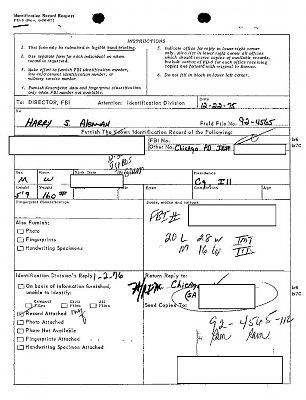 Identification Record Request
INSTRUCTIONS
1. This form may be submitted in legible hand printing.
2. Use separate form for each individual on whom record is requested.
3. Make effort to furnish FBI identification number, law enforcement identification number, or military service number.
4. Furnish descriptive data and fingerprint classification only when FBI number not available.
5. Indicate office for reply in lower right corner only. Also list in lower right corner all offices which should receive copies of available records. Include carbon of FD-9 for each office receiving copies and forward with original to Bureau.
6. Do not fill in block in lower left corner.
To: DIRECTOR, FBI
Attention: Identification Division
Date
12-22-75
Re:
HARRY S. Aleman
Field File No.
92-4565
Furnish The Known Identification Record of the Following:
FBI No.
Other No. Chicago PD
b6
b7C
Sex
M
Race
W
Birth Date
Birthplace
Residence
Cg. Ill
Height
5'9
Weight
160#
Eyes
Complexion
Fingerprint Classification
Scars, marks and tattoos
FBI #
20 L 28 W
M 16 W
Also Furnish:
Photo
Fingerprints
Handwriting Specimens
Identification Division's Reply 1-2-76
On basis of information furnished, unable to identify:
Criminal Files
Civil Files
All Files
Record Attached
Photo Attached
Photo Not Available
Fingerprints Attached
Handwriting Specimens Attached
Return Reply to:
Chicago
Send Copies To:
b6
b7C
92-4565-112